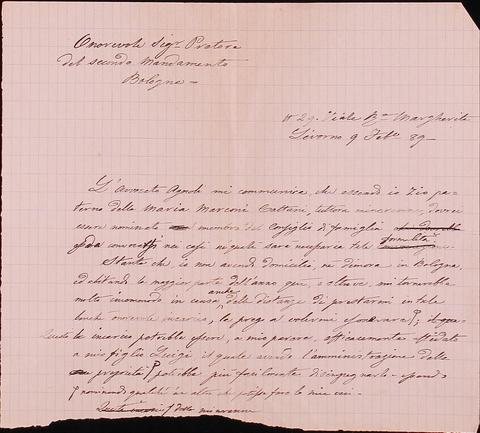 Onorevole Sigr Pretore
del secondo Mandamento
Bologna -
No 29. Viale Ra Margherita
Livorno 9 Febo 89 -
L'Avvocato Agnoli mi communica, che essendo io Zio pa-
terno della Maria Marconi Cattani, tuttora minorenne, dovrei
essere nominato membro del Consiglio di famiglia
convocarsi nei casi ne' quali sarà necessaria tale formalità
Stante che, io non avendo domicilio, ne dimora in Bologna,
ed abitando la maggior parte dell'anno qui, e altrove, mi tornerebbe
molto incomodo, in causa anche della distanza di prestarmi in tale
onorevole incarico, la prego a volermi
Questo incarico potrebbe essere, a mio parere, efficacemente affidato
a mio figlio Luigi il quale avendo l'amministrazione delle
proprietà potrebbe più facilmente disimpegnarlo
nominando qualche altro che possa fare le mie veci -